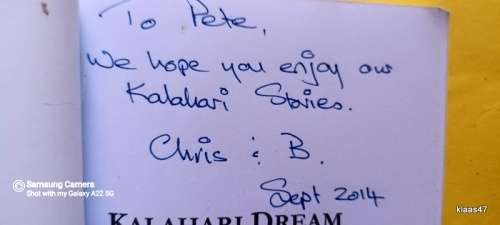 To Pete,
We hope you enjoy our
Kalahari Stories.
Chris & B.
Sept 2014
KALAHARI DREAM
Samsung Camera
Shot with my Galaxy A22 5G
klaas47